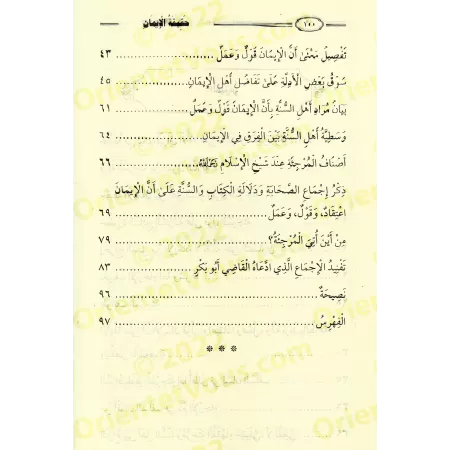 حقيقة الإيمان ١٠٠
تَفْصِيلُ مَعْنَىٰ أَنَّ الْإِيمَانَ قَوْلٌ وَعَمَلٌ ........................ ٤٣
سَوْقُ بَعْضِ الْأَدِلَّةِ عَلَىٰ تَفَاضُلِ أَهْلِ الْإِيمَانِ ................ ٤٥
بَيَانُ مُرَادِ أَهْلِ السُّنَّةِ بِأَنَّ الْإِيمَانَ قَوْلٌ وَعَمَلٌ ............... ٦١
وَسَطِيَّةُ أَهْلِ السُّنَّةِ بَيْنَ الْفِرَقِ فِي الْإِيمَانِ .................. ٦٤
أَصْنَافُ الْمُرْجِئَةِ عِنْدَ شَيْخِ الْإِسْلَامِ رَحِمَهُ اللَّهُ ................ ٦٦
ذِكْرُ إِجْمَاعِ الصَّحَابَةِ وَدَلَالَةِ الْكِتَابِ وَالسُّنَّةِ عَلَىٰ أَنَّ الْإِيمَانَ
اعْتِقَادٌ، وَقَوْلٌ، وَعَمَلٌ ........................................ ٦٩
مِنْ أَيْنَ أُتِيَ الْمُرْجِئَةُ؟ ........................................ ٧٩
تَفْنِيدُ الْإِجْمَاعِ الَّذِي ادَّعَاهُ الْقَاضِي أَبُو بَكْرٍ ................ ٨٣
نَصِيحَةٌ ........................................................ ٩٦
الْفِهْرِسُ ...................................................... ٩٧
* * *
© 2022
Orientenyous.com